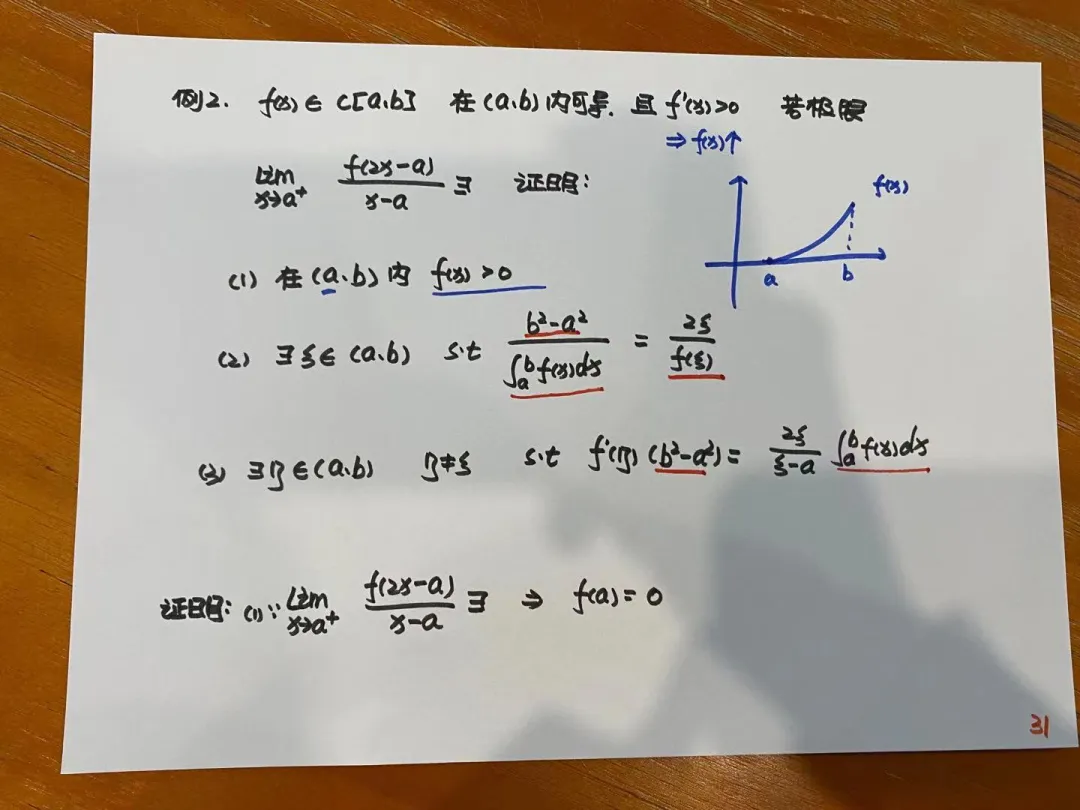 例2. f(x)∈ C[a,b] 在(a,b)内可导, 且 f'(x)>0 若极限
⇒ f(x)↑
lim x→a⁺ f(2x-a)/(x-a) ∃ 证明:
f(x)
a b
(1) 在(a,b)内 f(x)>0
(2) ∃ξ∈(a,b) s.t (b²-a²)/(∫ₐᵇf(x)dx) = 2ξ/f(ξ)
(3) ∃η∈(a,b) η≠ξ s.t f'(η)(b²-a²)= 2ξ/(ξ-a) ∫ₐᵇf(x)dx
证明: (1)∵ lim x→a⁺ f(2x-a)/(x-a) ∃ ⇒ f(a)=0
31